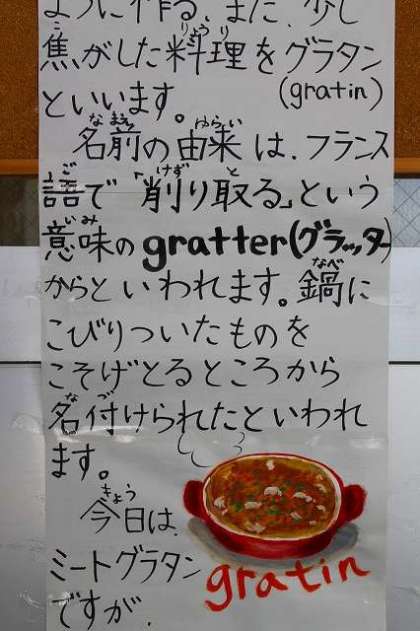 ように作る。また、少し
焦がした料理をグラタン
といいます。(gratin)
名前の由来は、フランス
語で「削り取る」という
意味のgratter(グラッター)
からといわれます。鍋に
こびりついたものを
こそげとるところから
名付けられたといわれ
ます。
今日は、
ミートグラタン
ですが、
gratin